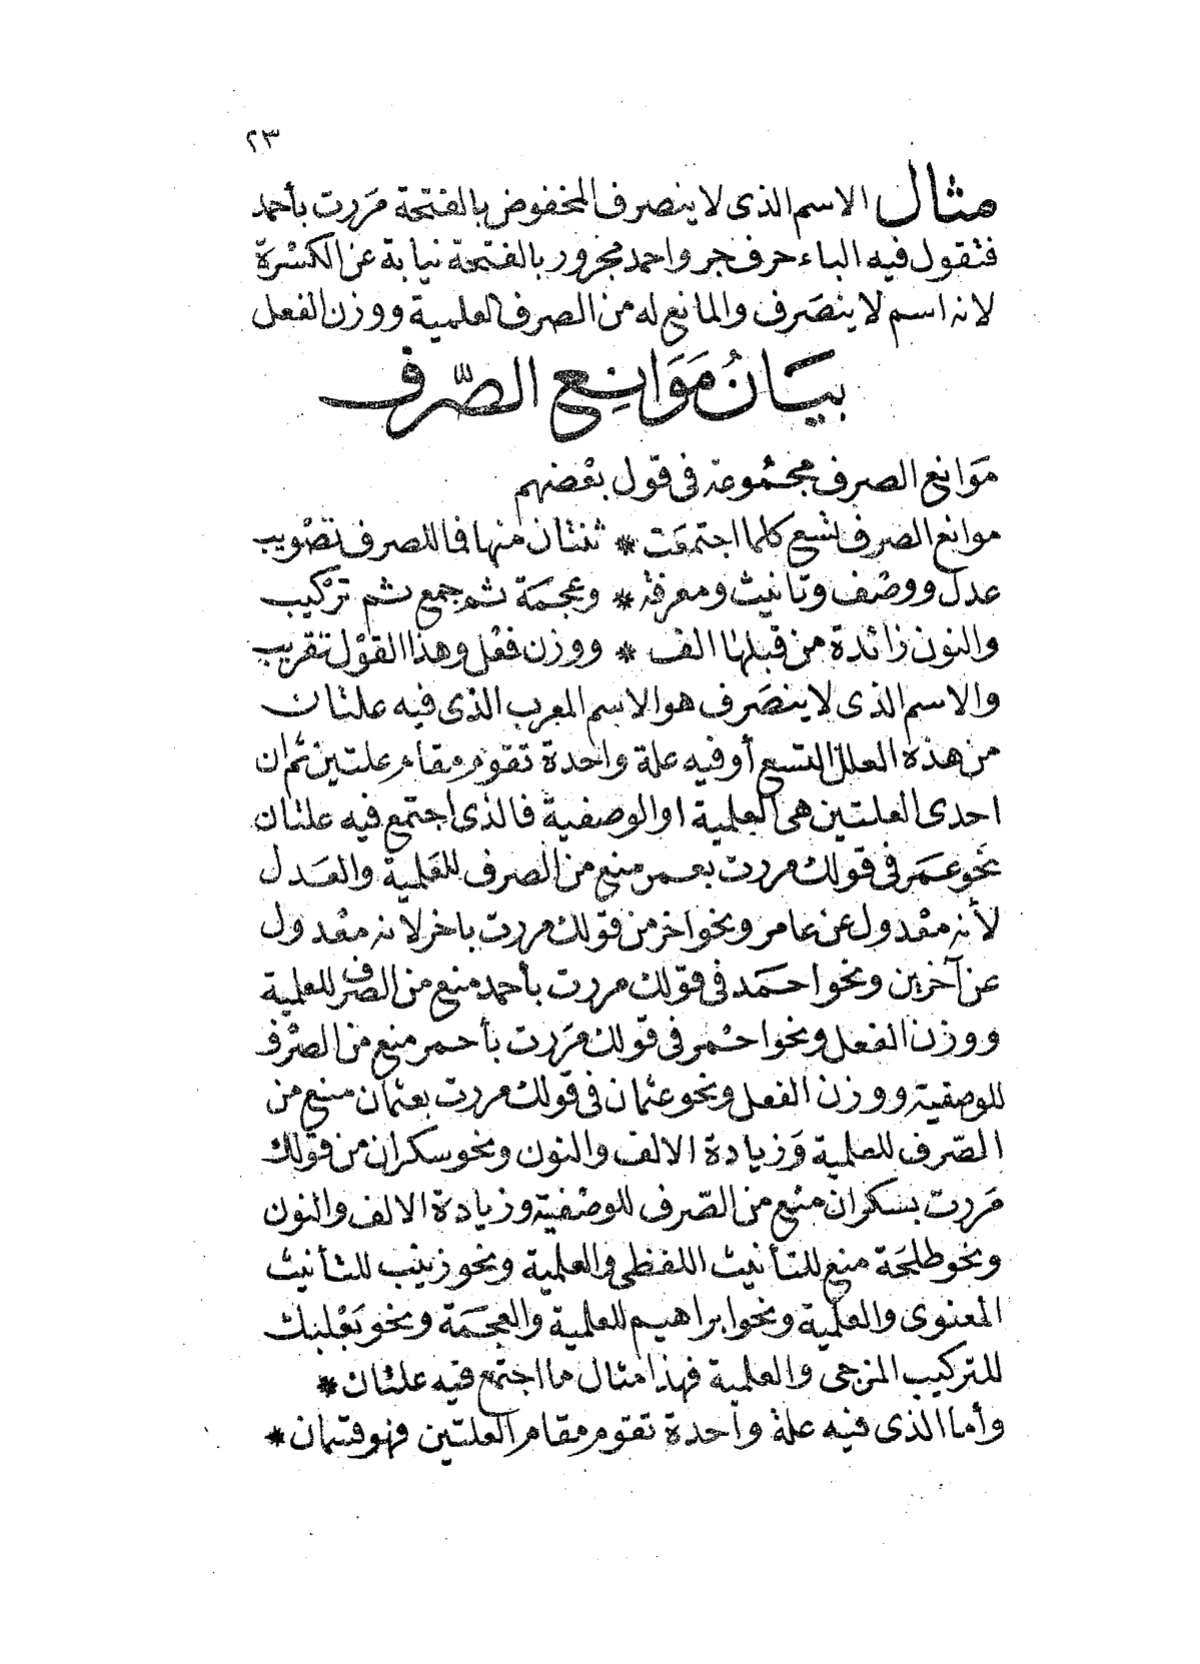 ٢٣
مثال الاسم الذى لا ينصرف المخفوض بالفتحة مَررت بأحمد
فتقول فيه الباء حرف جر واحمد مجرور بالفتحة نيابة عن الكسْرة
لانه اسم لا ينصَرف والمانع له من الصرف العلمية ووزن الفعل
بيَانُ مَوَانِع الصّرف
مَوَانع الصرف مجمُوعة فى قول بعْضهم
موانع الصرف تسْع كلما اجتمعَت * ثنتان منها فما للصرف تصْويب
عدل ووصْف وتانيث ومعرفة * وعجمَة ثم جمع ثم ترْكيب
والنون زائدة من قبلها الف * ووزن فعْل وهذا القوْل تقريب
والاسم الذى لا ينصَرف هو الاسم المعرب الذى فيه علتان
من هذه العلل التسع أو فيه علة واحدة تقوم مقام علتين ثم ان
احدى العلتين هى العلمية او الوصفية فالذى اجتمع فيه علتان
نحو عمَر فى قولك مررت بعمر منع من الصرف للعَلمية والعَدل
لأنه معْدول عن عامر ونحو اخر من قولك مررت باخر لانه معْدول
عن آخرين ونحو احمَد فى قولك مررت بأحمد منع من الصرف للعلمية
ووزن الفعل ونحو احْمر فى قولك مَررت بأحمر منع من الصرْف
للوصفية ووزن الفعل ونحو عثمان فى قولك مررت بعثمان منع من
الصّرف للعلمية وَزيادة الالف والنون ونحو سكران من قولك
مَررت بسكران منع من الصّرف للوصْفية وزيادة الالف والنون
ونحو طلحَة منع للتأنيث اللفظى والعلمية ونحو زينب للتأنيث
المعنوى والعلمية ونحو ابراهيم للعلمية والعجمَة ونحو بَعْلبك
للتركيب المزجى والعلمية فهذا مثال ما اجتمع فيه علتان *
وأما الذى فيه علة واحدة تقوم مقام العلتين فهو قسمان *